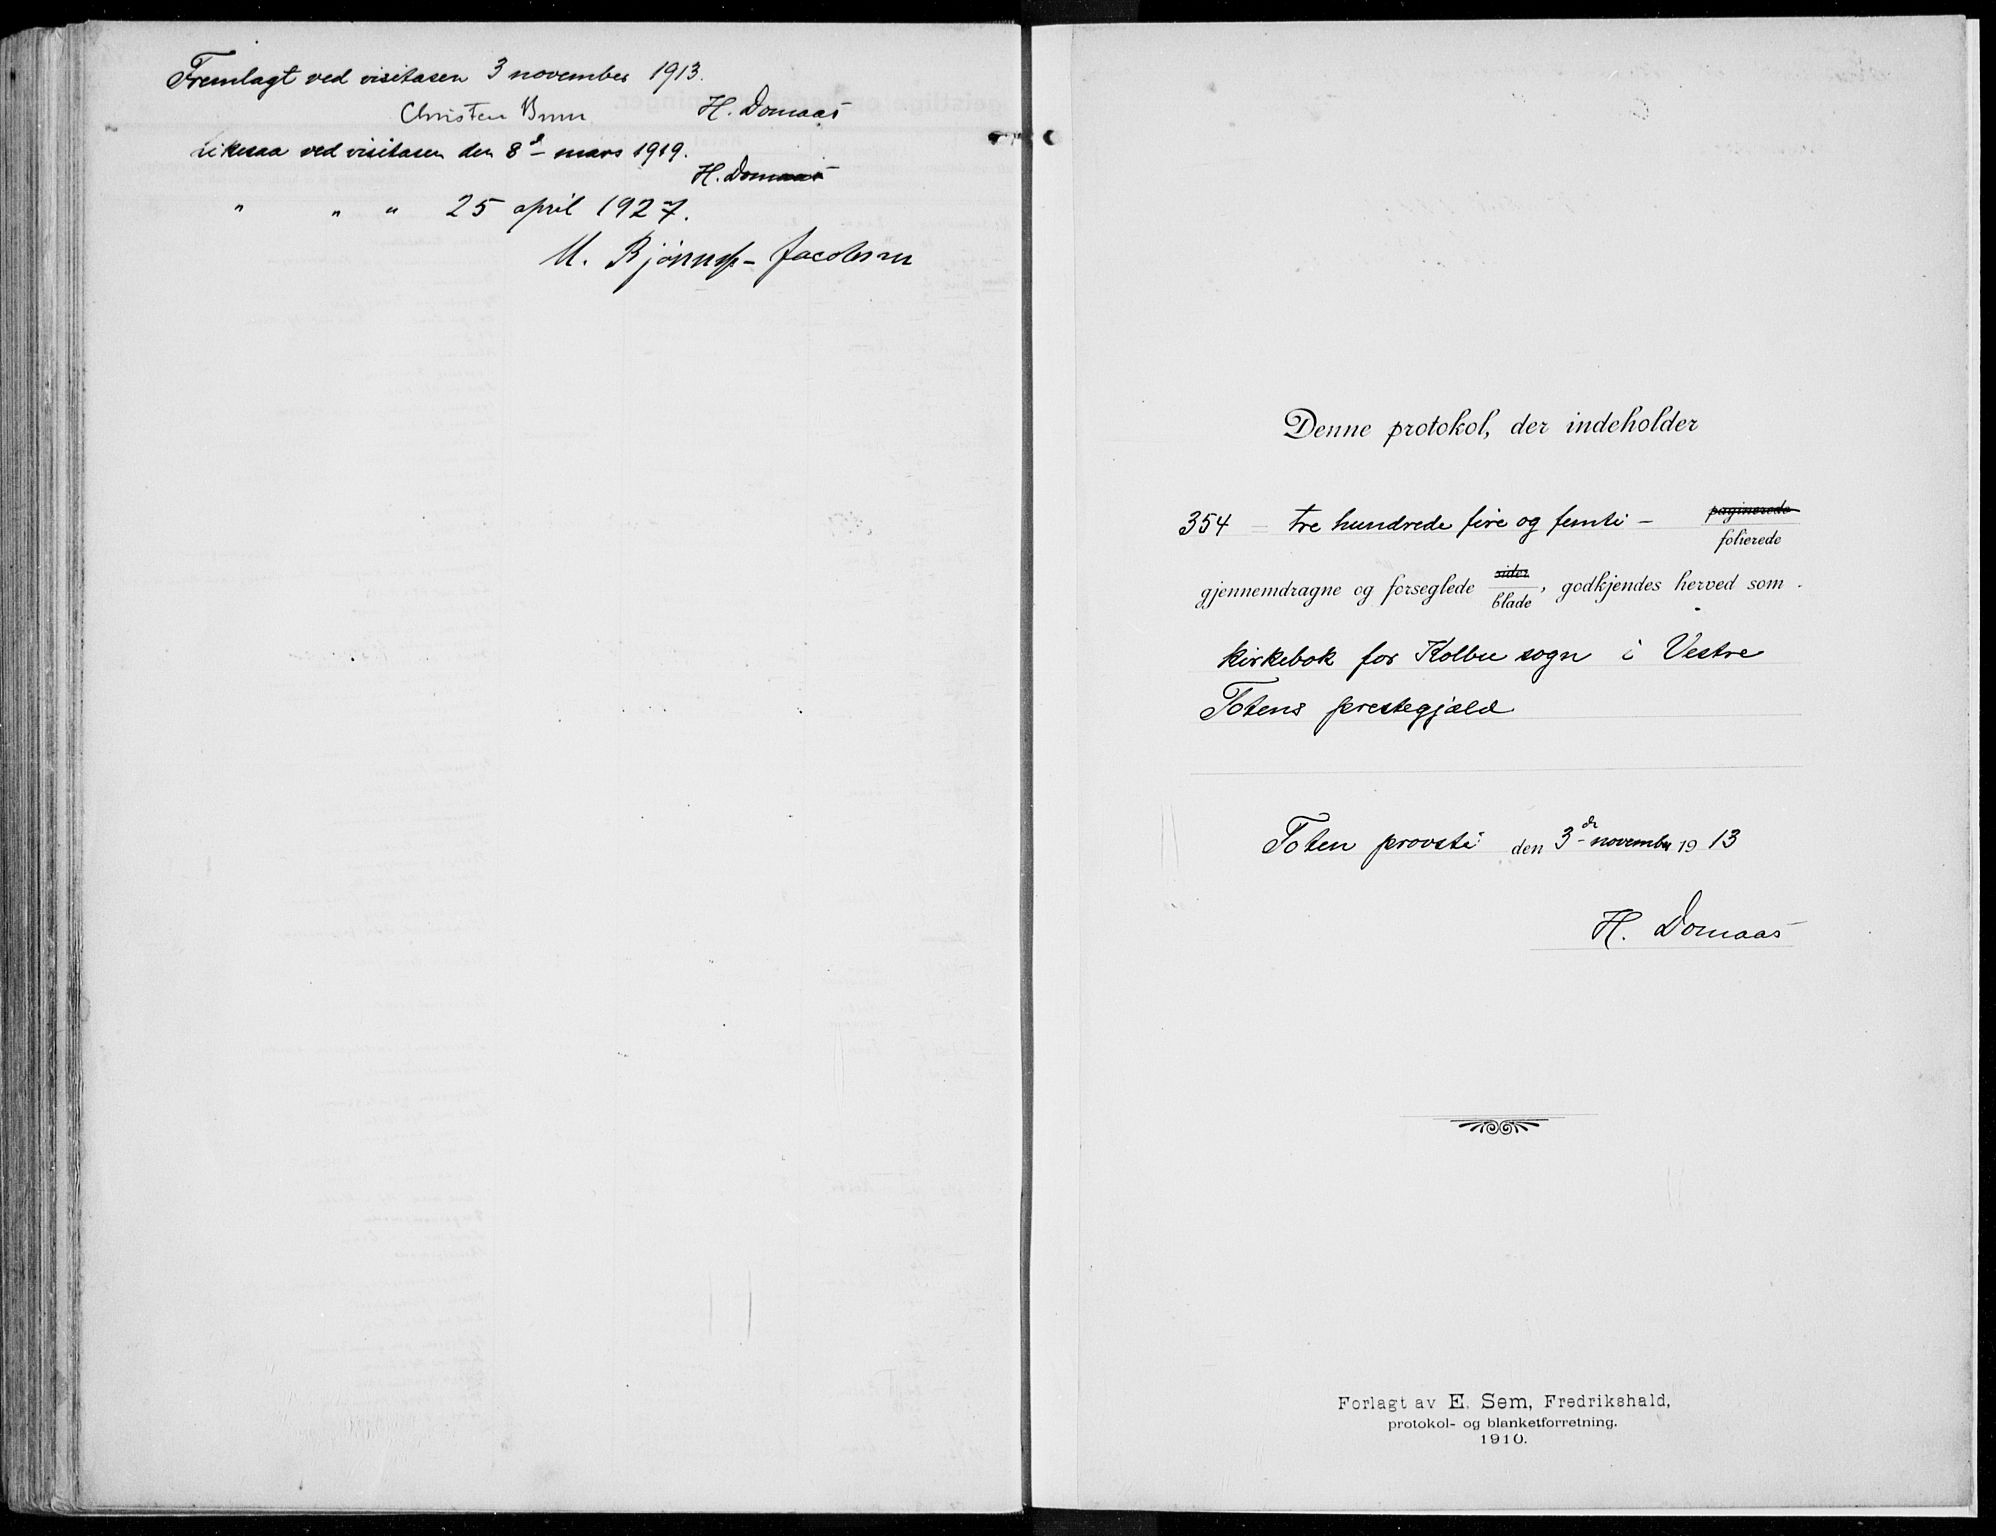 Fremlagt ved visitasen 3 november 1913.
Christen Brun H. Domaas
Likesaa ved visitasen den 8d– mars 1919.
H. Domaas
" " " 25 april 1927.
M. Jacobsen
Denne protokol, der indeholder
354 = tre hundrede fire og femti – paginerede
folierede
gjennemdragne og forseglede sider
blade, godkjendes herved som
kirkebok for Kolbu sogn i Vestre
Totens prestegjæld
Toten provsti den 3de november 1913
H. Domaas
Forlagt av E. Sem, Fredrikshald,
protokol- og blanketforretning.
1910.